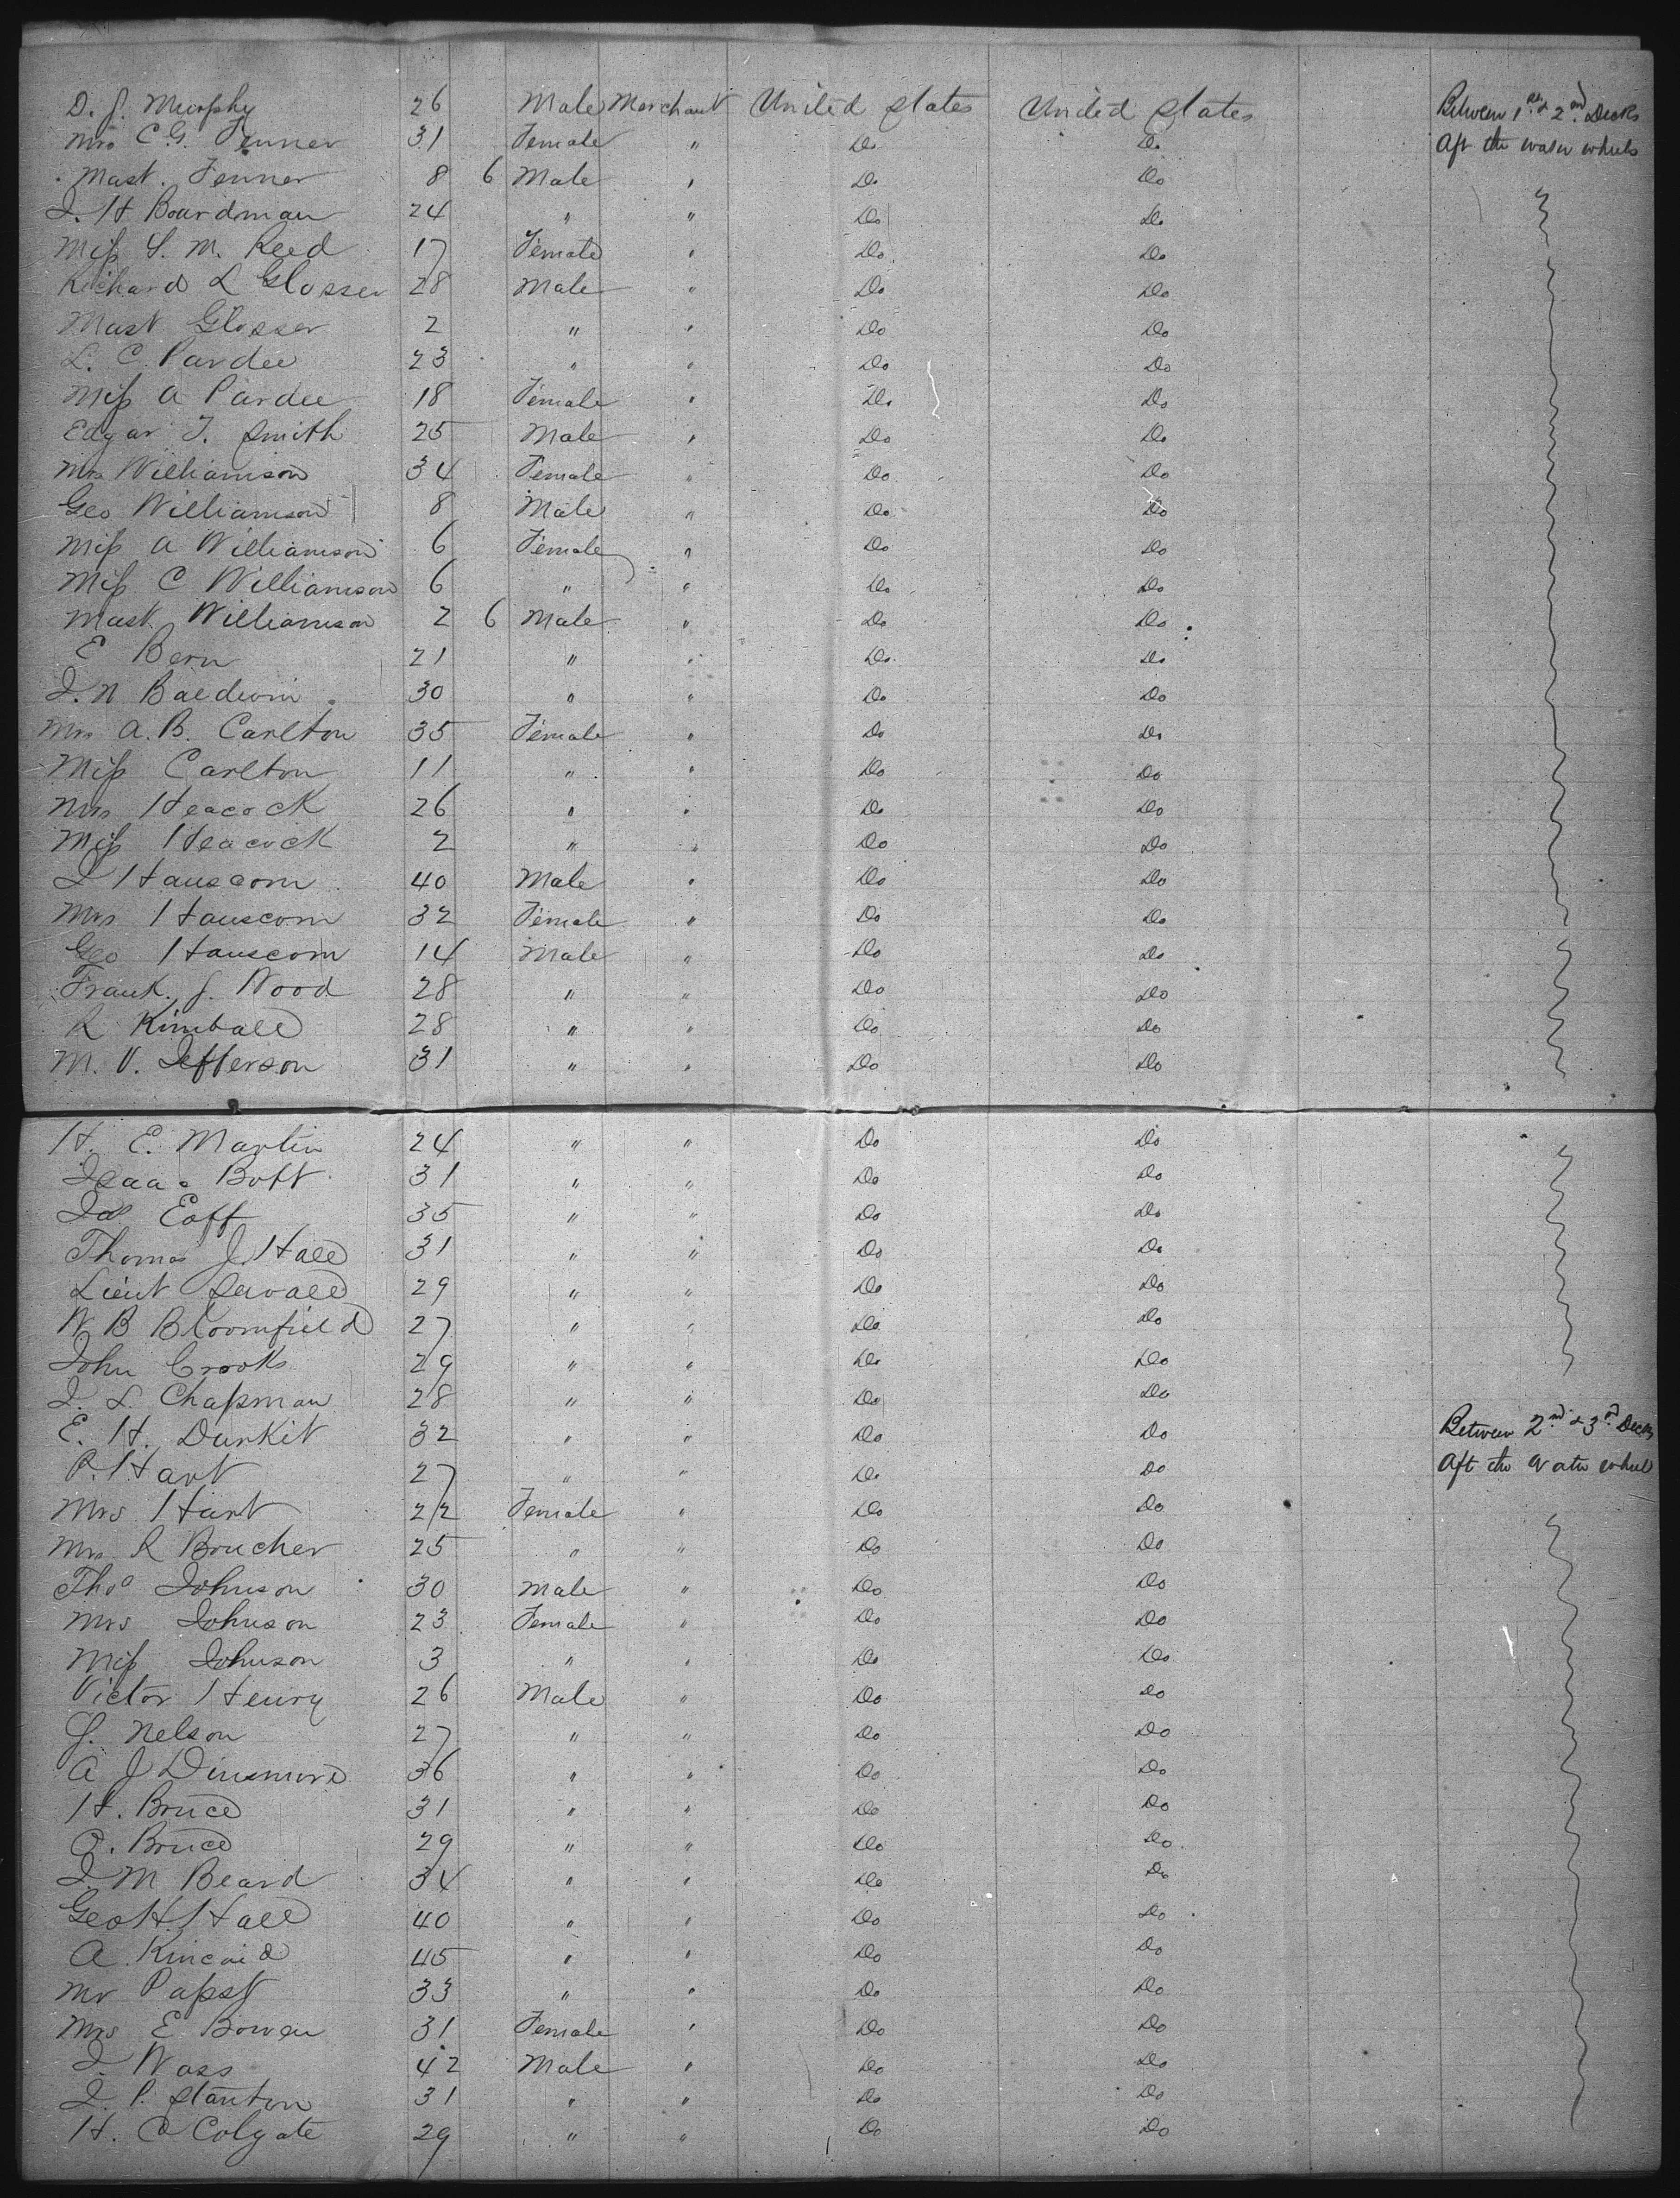 D. J. Murphy 26 Male Merchant United States United States Between 1st & 2nd Decks
Mrs C. G. Fenner 31 Female " Do Do Aft the water wheels
Mast. Fenner 8 6 Male " Do Do
I. H Boardman 24 " " Do Do
Miss S. M. Reed 17 Female " Do Do
Richard L Glosser 28 Male " Do Do
Mast Glosser 2 " " Do Do
L. C. Pardee 23 " " Do Do
Miss A Pardee 18 Female " Do Do
Edgar T. Smith 25 Male " Do Do
Mrs Williamson 34 Female " Do Do
Geo Williamson 8 Male " Do Do
Miss A Williamson 6 Female " Do Do
Miss C Williamson 6 " " Do Do
Mast. Williamson 2 6 Male " Do Do
E Bern 21 " " Do Do
I. N Baldwin 30 " " Do Do
Mrs A. B. Carlton 35 Female " Do Do
Miss Carlton 11 " " Do Do
Mrs Heacock 26 " " Do Do
Miss Heacock 2 " " Do Do
I Hauscom 40 Male " Do Do
Mrs Hauscom 32 Female " Do Do
Geo Hauscom 14 Male " Do Do
Frank. J. Wood 28 " " Do Do
R Kimball 28 " " Do Do
M. V. Jefferson 31 " " Do Do
H. E. Martin 24 " " Do Do
Isaac Bott 31 " " Do Do
Jas Eoff 35 " " Do Do
Thomas J. Hall 31 " " Do Do
Lieut Sewall 29 " " Do Do
W B Bloomfield 27 " " Do Do
John Crooks 29 " " Do Do
I. L. Chapman 28 " " Do Do
E. H. Durkit 32 " " Do Do Between 2nd & 3rd Decks
P. Hart 27 " " Do Do Aft the Water wheel
Mrs Hart 22 Female " Do Do
Mrs R Boucher 25 " " Do Do
Thos Johnson 30 Male " Do Do
Mrs Johnson 23 Female " Do Do
Miss Johnson 3 " " Do Do
Victor Henry 26 Male " Do Do
J. Nelson 27 " " Do Do
A J Dinsmore 36 " " Do Do
H. Bruce 31 " " Do Do
O. Bruce 29 " " Do Do
I. M Beard 34 " " Do Do
Geo H. Hall 40 " " Do Do
A. Kincaid 45 " " Do Do
Mr Papst 33 " " Do Do
Mrs E Bowen 31 Female " Do Do
I Wass 42 Male " Do Do
I. P. Stanton 31 " " Do Do
H. C Colgate 29 " " Do Do